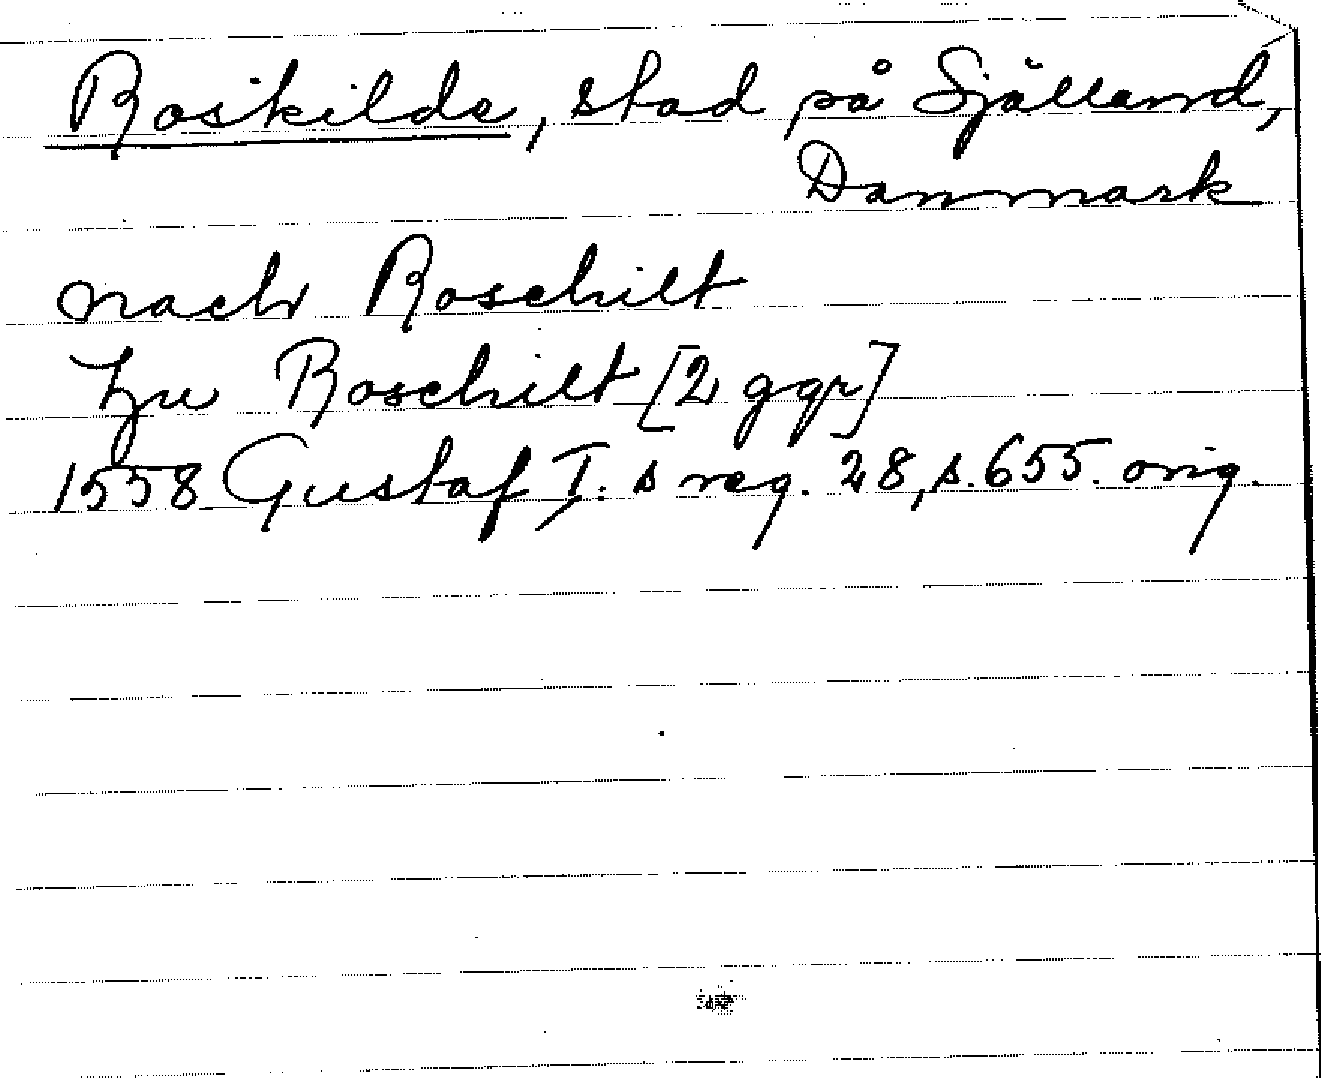 Roskilde, stad på Själland,
Danmark
nach Roschilt
Zu Roschilt [2 ggr]
1558 Gustaf I:s reg. 28, s. 655. orig.